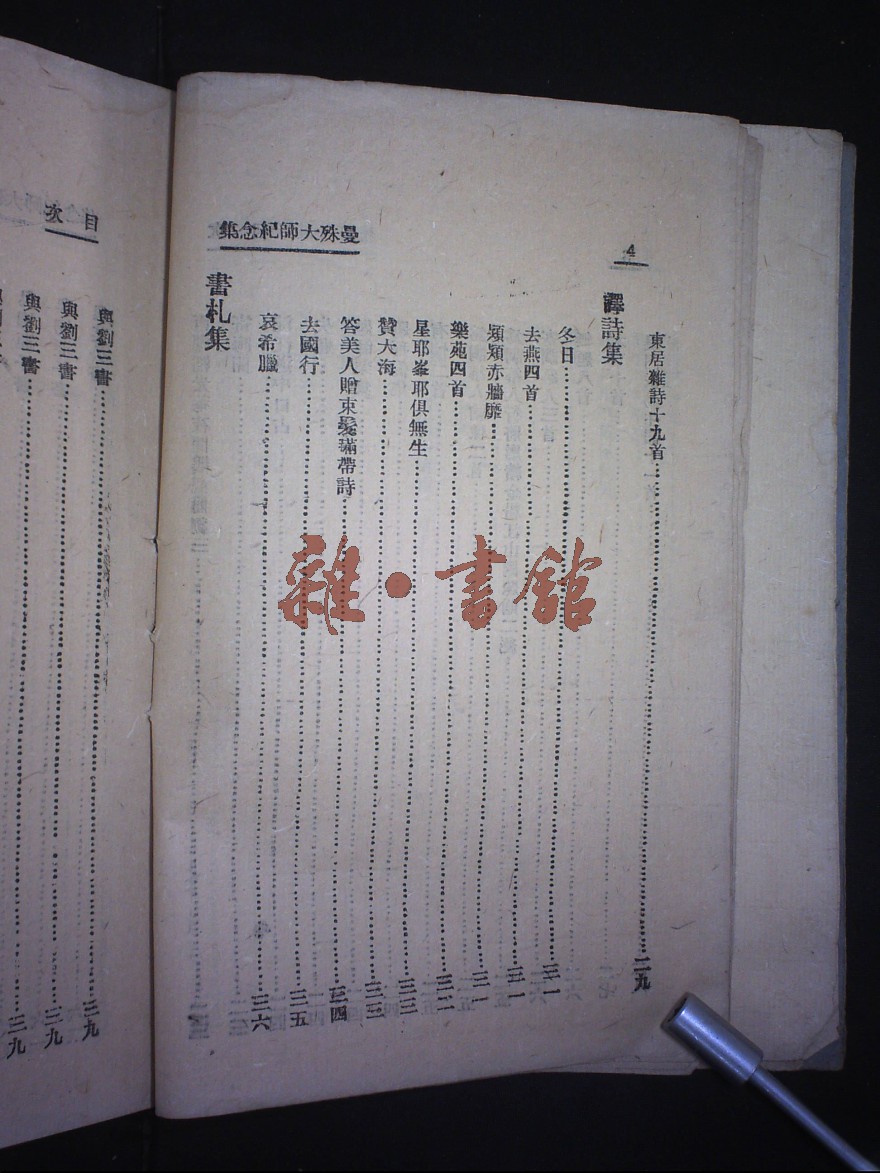 4
曼殊大師紀念集
東居雜詩十九首……二九
譯詩集
冬日……三一
去燕四首……三一
熲熲赤牆靡……三一
樂苑四首……三二
星耶峯耶俱無生……三三
贊大海……三三
答美人贈束髮璊帶詩……三四
去國行……三五
哀希臘……三六
書札集
目次
與劉三書……三九
與劉三書……三九
與劉三書……三九
雜·書館